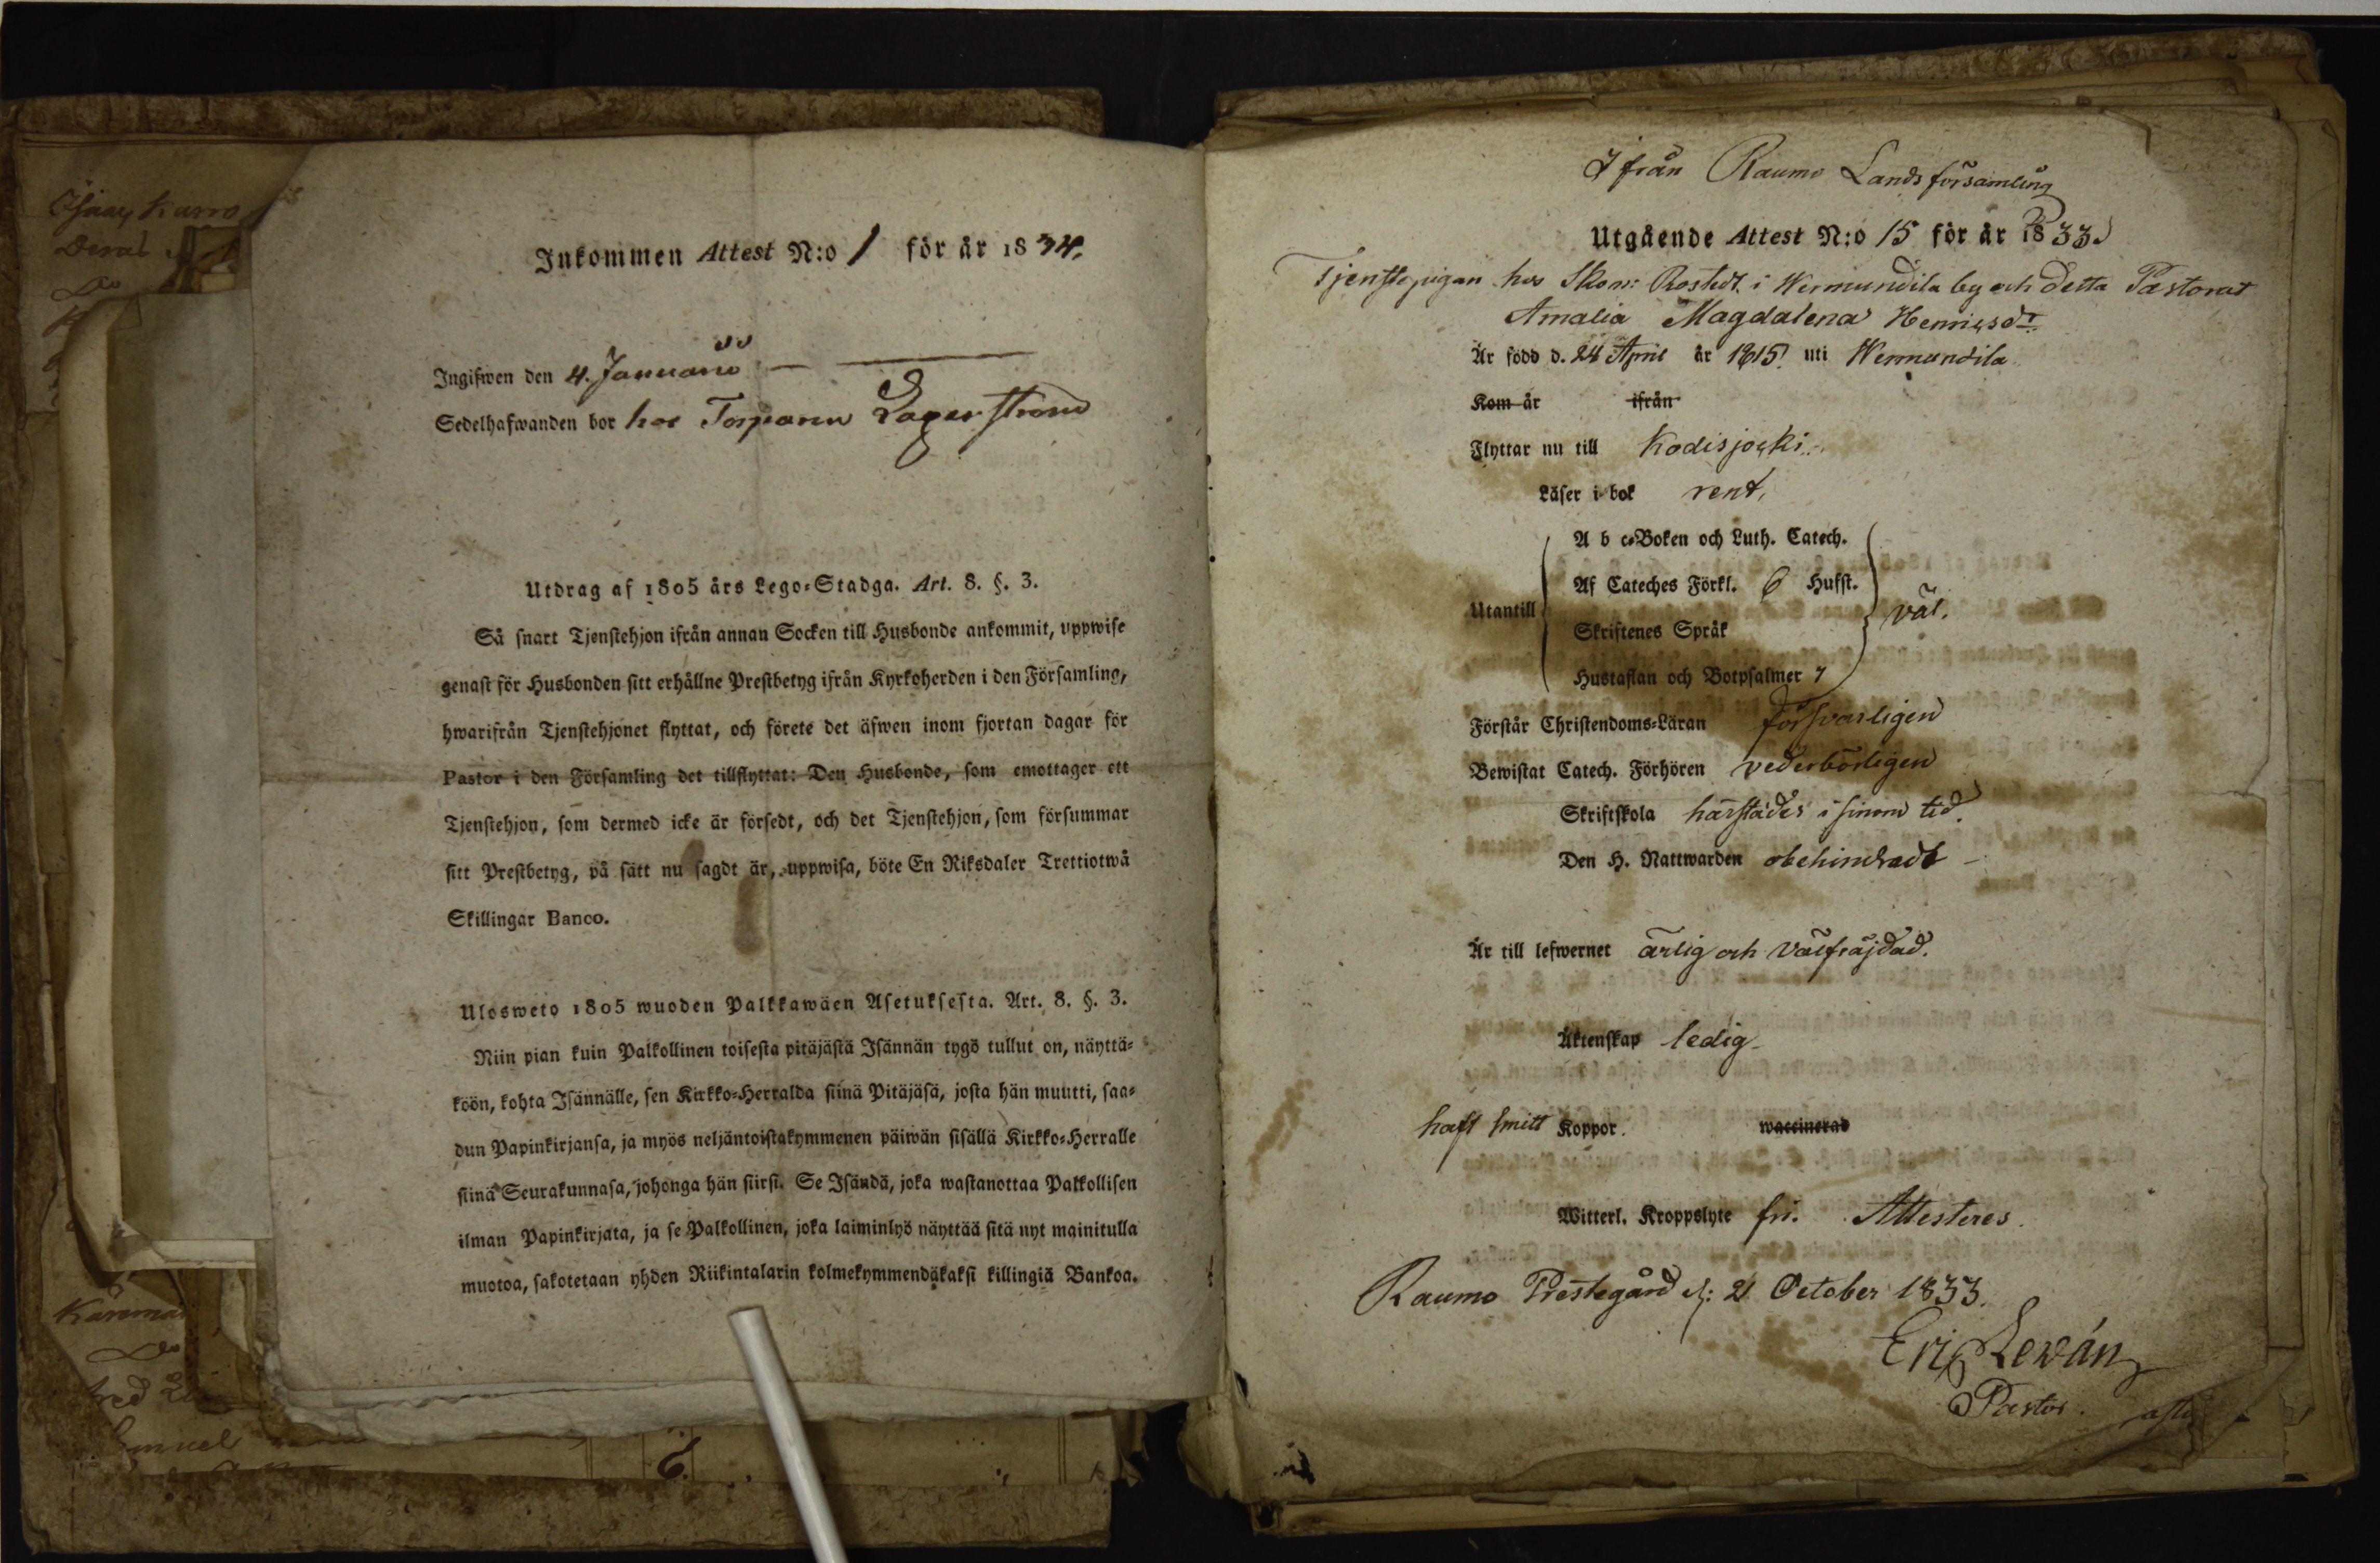 Inkommen Attest N:o 1 för år 1834.
Ingifwen den 4. Januarii
Sedelhafwanden bor hos Torparen Lagerström
Utdrag af 1805 års Lego-Stadga. Art. 8. §. 3.
Så snart Tjenstehjon ifrån annan Socken till Husbonde ankommit, uppwise
genast för Husbonden sitt erhållne Prestbetyg ifrån Kyrkoherden i den Församling,
hwarifrån Tjenstehjonet flyttat, och förete det äfwen inom fjortan dagar för
Pastor i den Församling det tillflyttat: Den Husbonde, som emottager ett
Tjenstehjon, som dermed icke är försedt, och det Tjenstehjon, som försummar
sitt Prestbetyg, på sätt nu sagdt är, uppwisa, böte En Riksdaler Trettiotwå
Skillingar Banco.
Ulosweto 1805 wuoden Palkkawäen Asetuksesta. Art. 8. §. 3.
Niin pian kuin Palkollinen toisesta pitäjästä Isännän tygö tullut on, näyttä-
köön, kohta Isännälle, sen Kirkko-Herralda siinä Pitäjäsä, josta hän muutti, saa-
dun Papinkirjansa, ja myös neljäntoistakymmenen päiwän sisällä Kirkko-Herralle
siinä Seurakunnasa, johonga hän siirsi. Se Isändä, joka wastanottaa Palkollisen
ilman Papinkirjata, ja se Palkollinen, joka laiminlyö näyttää sitä nyt mainitulla
muotoa, sakotetaan yhden Riikintalarin kolmekymmendäkaksi killingiä Bankoa.
Karema
Do
6.
Ifrån Raumo Lands församling
Utgående Attest N:o 15 för år 1833.
Tjenstepigan hos Skom: Rostedt i Wermundila by och detta Pastorat
Amalia Magdalena Henricsdr
Är född d. 24 April år 1815. uti Wermundila
Kom år ifrån
Flyttar nu till Kodisjocki.
Läser i bok rent,
A b c-Boken och Luth. Catech.
Af Cateches Förkl. 6 Hufst.
Utantill väl.
Skriftenes Språk
Hustaflan och Botpsalmer 7
Förstår Christendoms-Läran försvarligen
Bewistat Catech. Förhören vederbörligen
Skriftskola härstädes i sinom tid.
Den H. Nattwarden obehindradt
Är till lefwernet ärlig och välfräjdad.
Äktenskap ledig
haft smitt Koppor. waccinerad
Witterl. Kroppslyte fri. Attesteres.
Raumo Prestegård d: 21 October 1833.
Eric Lewán
Pastor.